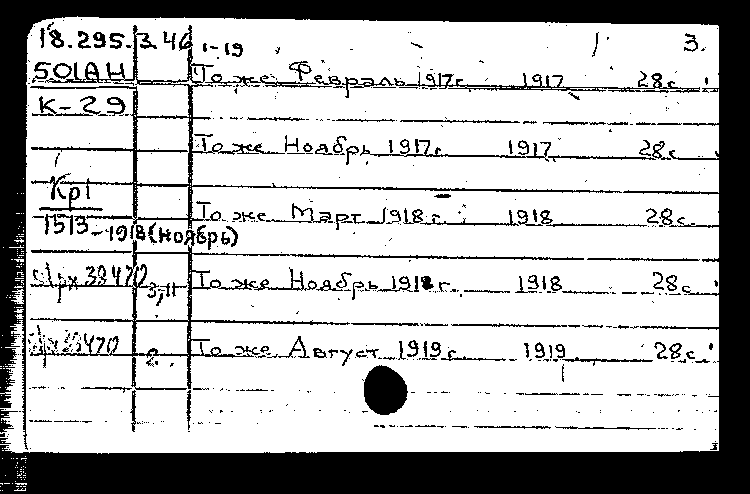 18.295. 3.46 1-19 3.
501АН То же Февраль 1917г. 1917 28с.
К-29
То же Ноябрь 1917г. 1917 28с.
Кр1
1513 То же Март 1918г. 1918 28с.
-1918(ноябрь)
38470 3,11 То же Ноябрь 1918г. 1918 28с.
38470 2. То же Август 1919г. 1919 28с.